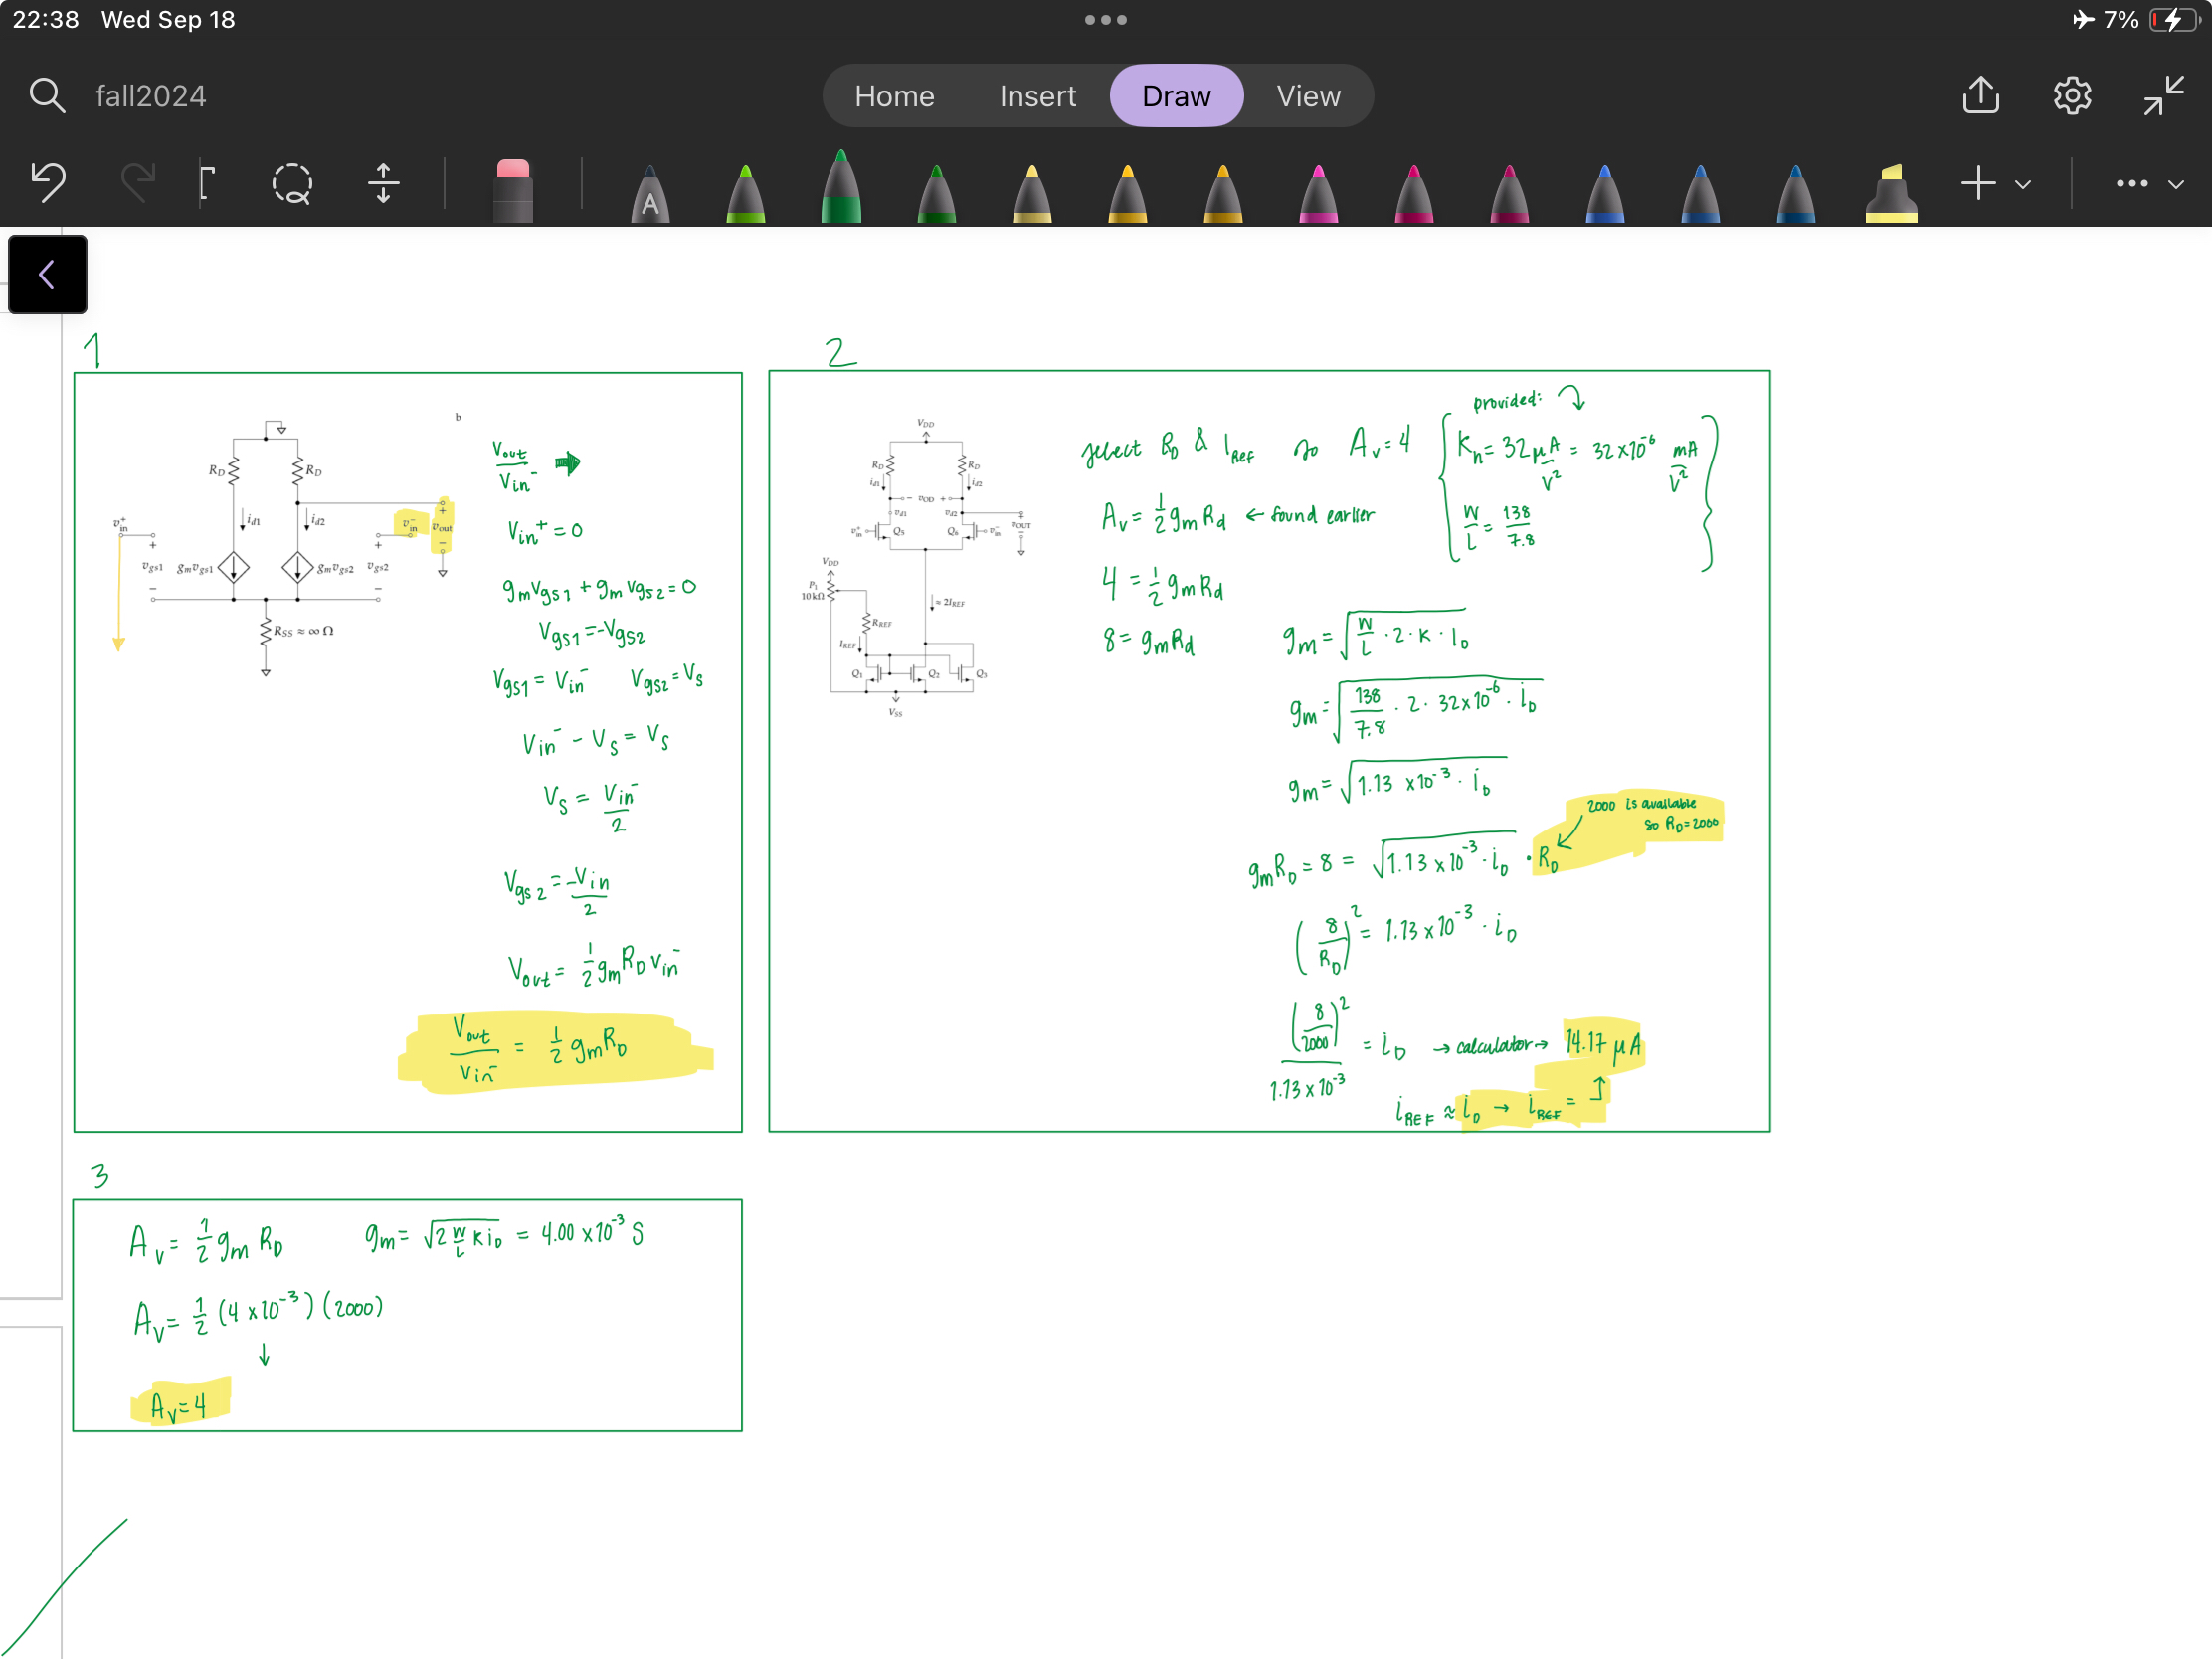 22:38 Wed Sep 18
7%
fall2024
Home Insert Draw View
A
1
b
R_D R_D
i_d1 i_d2
v_in^+ v_in^- v_out
+ + + −
v_gs1 g_m v_gs1 g_m v_gs2 v_gs2
− −
R_SS ≈ ∞ Ω
V_out / V_in^- →
V_in^+ = 0
g_m V_gs1 + g_m V_gs2 = 0
V_gs1 = -V_gs2
V_gs1 = V_in^- V_gs2 = V_s
V_in^- - V_s = V_s
V_s = V_in^- / 2
V_gs2 = -V_in / 2
V_out = 1/2 g_m R_D v_in^-
V_out / V_in^- = 1/2 g_m R_D
2
V_DD
R_D R_D
i_d1 i_d2
− v_OD +
v_d1 v_d2
v_in^+ Q5 Q6 v_in^- v_OUT
V_DD
P1
10kΩ
≈ 2I_REF
R_REF
I_REF
Q1 Q2 Q3
V_SS
select R_D & I_Ref so A_v = 4
provided:
K_n = 32 μA/V² = 32×10^-6 mA/V²
W/L = 138/7.8
A_v = 1/2 g_m R_d ← found earlier
4 = 1/2 g_m R_d
8 = g_m R_d
g_m = √(W/L · 2 · K · I_D)
g_m = √(138/7.8 · 2 · 32×10^-6 · i_D)
g_m = √(1.13 ×10^-3 · i_D)
2000 is available
so R_D = 2000
g_m R_D = 8 = √(1.13×10^-3 · i_D) · R_D
(8/R_D)² = 1.13×10^-3 · i_D
(8/2000)² / 1.13×10^-3 = i_D → calculator → 14.17 μA
i_REF ≈ i_D → i_REF =
3
A_v = 1/2 g_m R_D g_m = √(2 W/L K i_D) = 4.00 ×10^-3 S
A_v = 1/2 (4 ×10^-3)(2000)
↓
A_v = 4